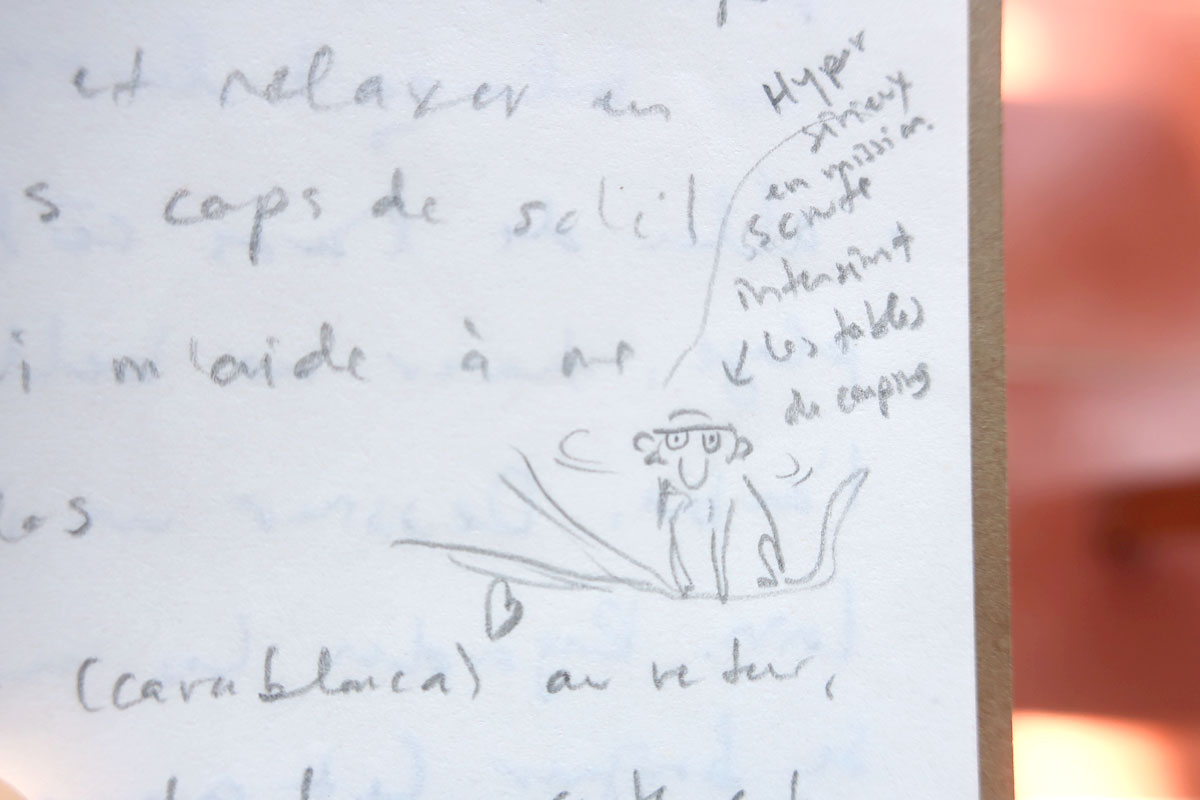 et relaxer en
s caps de soleil
i m'aide à me
(carablanca) au retur,
Hyper
sérieux
en mission.
Scrute
intensémt
les tables
de camping